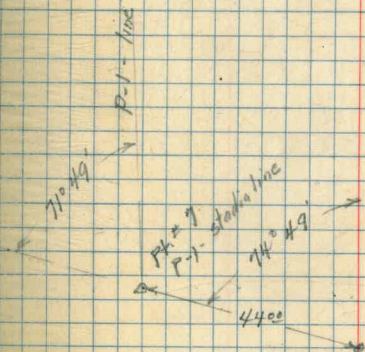 P-1- line
71° 49'
Pt. # 7
P-1- stadia line
74° 49'
44 00